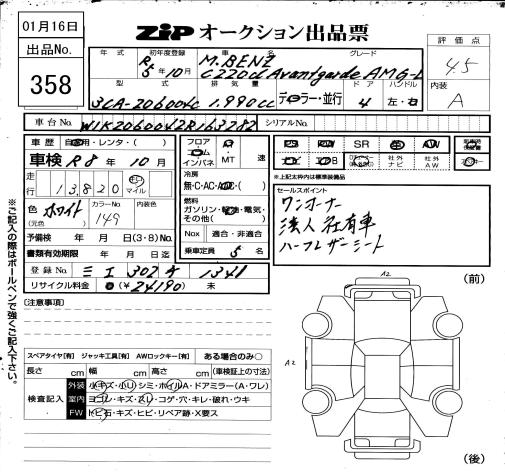 01月16日
出品No.
358
ZiP オークション出品票
評価点
4.5
内装
A
年式 初年度登録 車名 グレード
R5年10月 M.BENZ C220d Avantgarde AMG-L
型式 排気量 ドア ハンドル
3CA-206004C 1,990cc ディーラー・並行 4 左・右
車台No. W1K2060042R163282 シリアルNo.
車歴 自家用・レンタ・( )
車検 R8年10月
走行 13,820 km マイル
色(元色) ホワイト カラーNo. 149 内装色
予備検 年 月 日(3・8)No.
書類有効期限 年 月 日迄
登録No. 三重 302 1341
リサイクル料金 (¥24190) 未
フロア コラム インパネ
AT MT 速
冷房
無・C・AC・AAC・( )
燃料
ガソリン・軽油・電気・その他( )
Nox 適合・非適合
乗車定員 5名
SR AW
社外ナビ 社外AW
※上記太枠内は標準装備品
セールスポイント
ワンオーナー
法人社有車
ハーフレザーシート
※ご記入の際はボールペンで強くご記入下さい。
[注意事項]
スペアタイヤ[有] ジャッキ工具[有] AWロックキー[有] ある場合のみ○
長さ cm 幅 cm 高さ cm (車検証上の寸法)
検査記入
外装 小キズ・小リ・シミ・ホイルA・ドアミラー(A・ワレ)
室内 ヨゴレ・キズ・スリ・コゲ・穴・キレ・破れ・ウキ
FW トビ石・キズ・ヒビ・リペア跡・X要ス
A2
(前)
A2
(後)